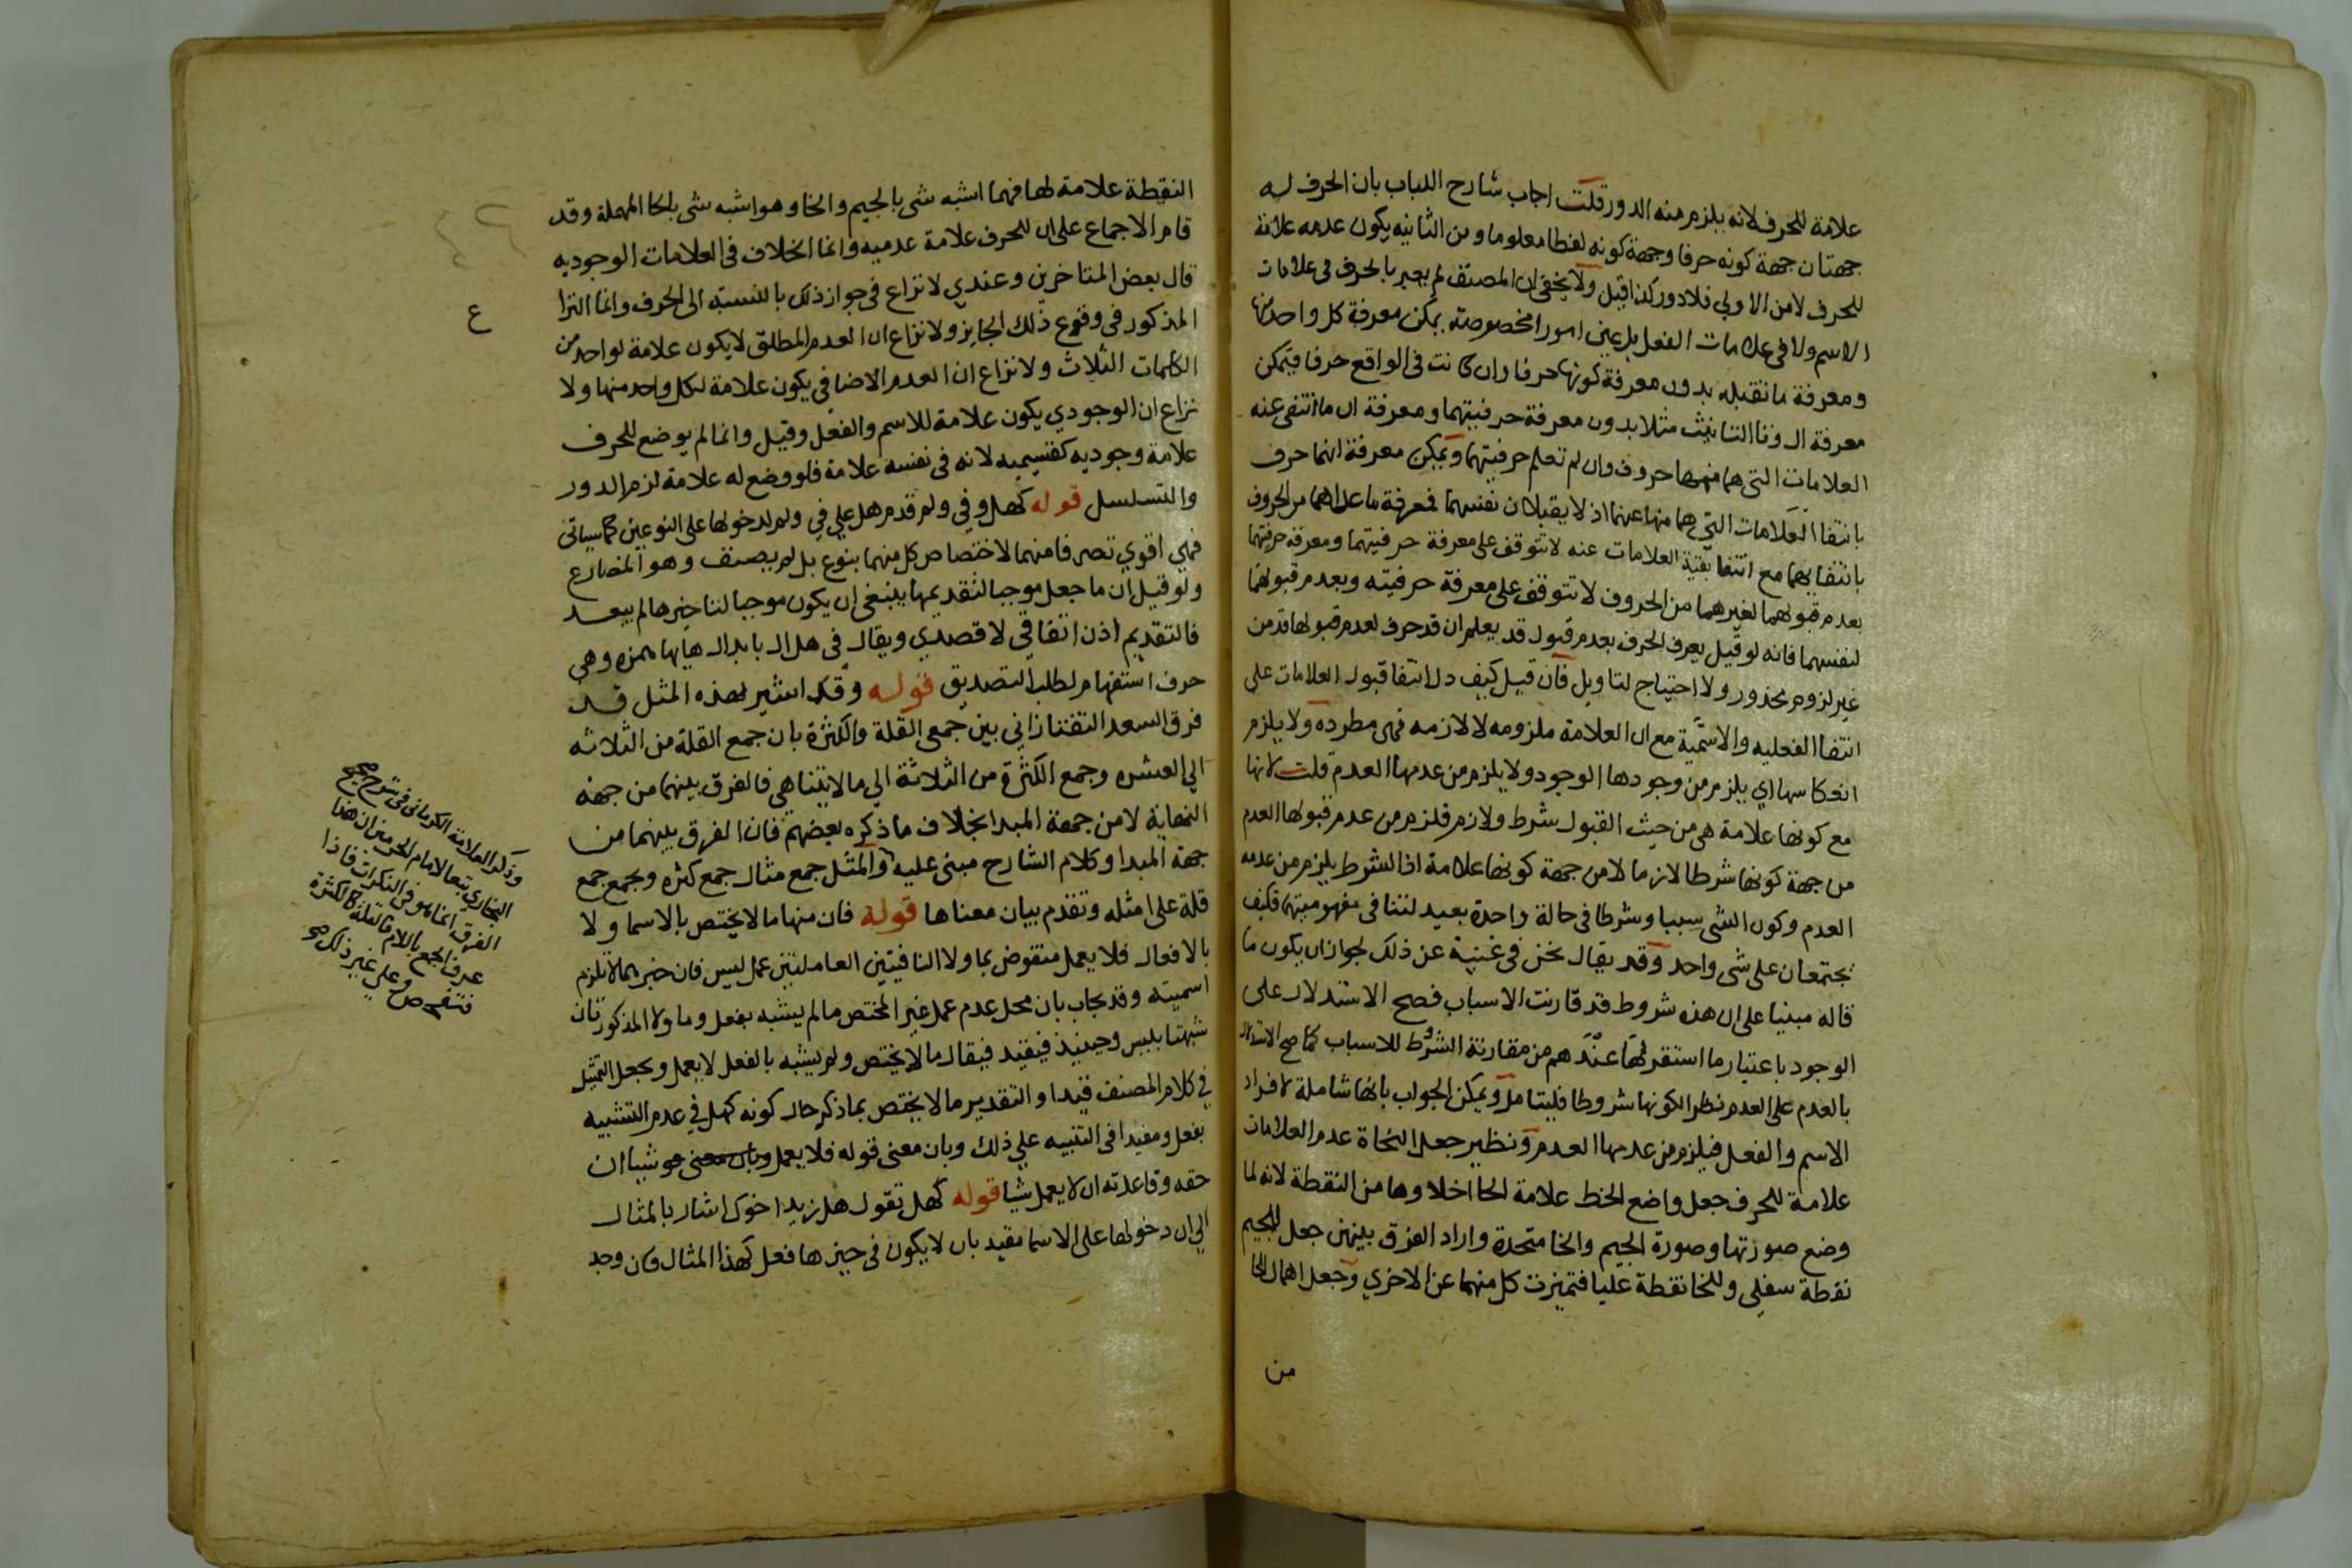 علامة للحرف لانه يلزم منه الدور قلت اجاب شارح اللباب بان الحرف له
جهتان جهة كونه حرفا وجهة كونه لفظا معلوما ومن الثانيه يكون عدمه علامة
للحرف لا من الاولي فلا دور كذا قيل ولا يخفى ان المصنف لم يعبر بالحرف فى علامات
الاسم ولا فى علامات الفعل بل عين امورا مخصوصة يمكن معرفة كل واحد منها
ومعرفة ما تقبله بدون معرفة كونها حرفا وان كانت فى الواقع حرفا فيمكن
معرفة ال وتا التانيث مثلا بدون معرفة حرفيتهما ومعرفة ان ما انتفى عنه
العلامات التى هما منها حروف وان لم تعلم حرفيتهما ويمكن معرفة انهما حرف
بانتفا العلامات التي هما منها عنهما اذ لا يقبلان نفسهما فمعرفة ما عداهما من الحروف
بانتفايهما مع انتفا بقية العلامات عنه لا تتوقف على معرفة حرفيتهما ومعرفة حرفيتهما
بعدم قبولهما لغيرهما من الحروف لا تتوقف على معرفة حرفيته وبعدم قبولهما
لنفسهما فانه لو قيل يعرف الحرف بعدم قبول قد يعلم ان قد حرف لعدم قبولها قد من
غير لزوم محذور ولا احتياج لتاويل فان قيل كيف دل انتفا قبول العلامات على
انتفا الفعليه والاسمية مع ان العلامة ملزومه لا لازمه فهى مطرده ولا يلزم
انعكاسها اي يلزم من وجودها الوجود ولا يلزم من عدمها العدم قلت لانها
مع كونها علامة هى من حيث القبول شرط ولازم فلزم من عدم قبولها العدم
من جهة كونها شرطا لازما لا من جهة كونها علامة اذ الشرط يلزم من عدمه
العدم وكون الشى سببا وشرطا فى حالة واحدة بعيد لتنافى مفهوميتهما فكيف
يجتمعان على شى واحد وقد يقال نحن فى غنية عن ذلك لجواز ان يكون ما
قاله مبنيا على ان هذه شروط قد قارنت الاسباب فصح الاستدلال على
الوجود باعتبار ما استقر لها عندهم من مقارنة الشروط للاسباب كما صح الاستدلال
بالعدم على العدم نظرا لكونها شروطا فليتامل ويمكن الجواب بانها شاملة لافراد
الاسم والفعل فيلزم من عدمها العدم ونظير جعل النحاة عدم العلامات
علامة للحرف جعل واضع الخط علامة الحا اخلاوها من النقطة لانه لما
وضع صورتها وصورة الجيم والخا متحدة واراد الفرق بينهن جعل للجيم
نقطة سفلي وللخا نقطة عليا فتميزت كل منهما عن الاخري وجعل اهمال الحا
من
النقطة علامة لها فهما اشبه شى بالجيم والخا وهو اشبه شى بالحا المهملة وقد
قام الاجماع على ان للحرف علامة عدميه وانما الخلاف فى العلامات الوجوديه
قال بعض المتاخرين وعندي لا نزاع فى جواز ذلك بالنسبته الى الحرف وانما النزا
ع
المذكور فى وقوع ذلك الجايز ولا نزاع ان العدم المطلق لا يكون علامة لواحد من
الكلمات الثلاث ولا نزاع ان العدم الاضافي يكون علامة لكل واحد منها ولا
نزاع ان الوجودي يكون علامة للاسم والفعل وقيل وانما لم يوضع للحرف
علامة وجوديه كقسيميه لانه فى نفسه علامة فلو وضع له علامة لزم الدور
والتسلسل قوله كهل وفي ولم قدم هل علي في ولم لدخولها على النوعين كما سياتى
فهي اقوي تصرفا منهما لاختصاص كل منهما بنوع بل لم بصنف وهو المضارع
ولو قيل ان ما جعل موجبا لتقديمها ينبغى ان يكون موجبا لتاخيرها لم يبعد
فالتقديم اذن اتفاقي لا قصدي ويقال في هل ال بابدال هايها همزه وهى
حرف استفهام لطلب التصديق قوله وقد اشير لهذه المثل قد
فرق السعد التفتازاني بين جمعى القلة والكثرة بان جمع القلة من الثلاثه
الي العشره وجمع الكثرة من الثلاثة الي ما لا يتناهى فالفرق بينهما من جهة
النهاية لا من جهة المبدا بخلاف ما ذكره بعضهم فان الفرق بينهما من
جهة المبدا وكلام الشارح مبنى عليه والمثل جمع مثال جمع كثره ويجمع جمع
قلة على امثله وتقدم بيان معناها قوله فان منها ما لا يختص بالاسما ولا
بالافعال فلا يعمل منقوض بما ولا النافيتين العاملتين عمل ليس فان خبرهما لا تلزم
اسميته وقد يجاب بان محل عدم عمل غير المختص ما لم يشبه بفعل وما ولا المذكورتان
شبهتا بليس وحينيذ فيقيد فيقال ما لا يختص ولم يشبه بالفعل لا يعمل ويجعل التمثيل
في كلام المصنف قيدا والتقدير ما لا يختص بما ذكر حال كونه كهل في عدم التشبيه
بفعل ومفيدا فى التنبيه علي ذلك وبان معنى قوله فلا يعمل وبان معنى هو شيا ان
حقه وقاعدته ان لا يعمل شيا قوله كهل تقول هل زيد اخوك اشار بالمثال
الي ان دخولها على الاسما مقيد بان لا يكون فى حيزها فعل كهذا المثال فان وجد
وذكر العلامة الكرمانى فى شرح صحيح
البخاري تبعا لامام الحرمين ان هذا
الفرق انما هو فى النكرات فاذا
عرف الجمع باللام فالقلة كالكثرة